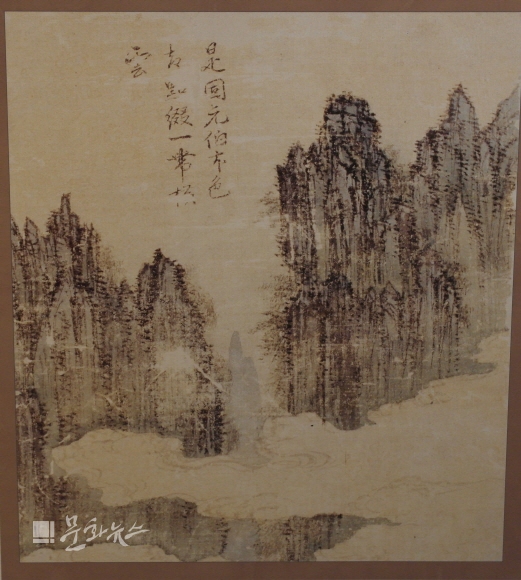 是固元伯本色
却點綴一帶橫
雲
문화뉴스